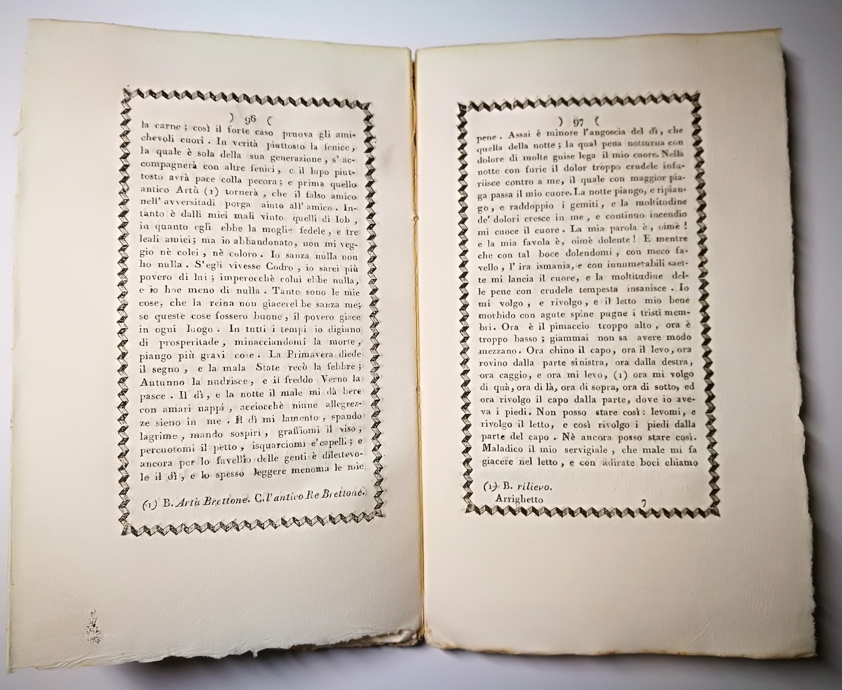 ) 96 (
la carne ; così il forte caso pruova gli ami-
chevoli cuori . In verità piuttosto la fenice,
la quale è sola della sua generazione, s' ac-
compagnerà con altre fenici, e il lupo piut-
tosto avrà pace colla pecora ; e prima quello
antico Artù (1) tornerà, che il falso amico
nell' avversitadi porga aiuto all' amico . In-
tanto è dalli miei mali vinto quelli di Iob,
in quanto egli ebbe la moglie fedele, e tre
leali amici; ma io abbandonato, non mi veg-
gio nè colei, nè coloro . Io sanza nulla non
ho nulla . S'egli vivesse Codro, io sarei più
povero di lui ; imperocchè colui ebbe nulla,
e io hoe meno di nulla . Tante sono le mie
cose, che la reina non giacerebbe sanza me;
se queste cose fossero buone, il povero giace
in ogni luogo . In tutti i tempi io digiuno
di prosperitade, minacciandomi la morte,
piango più gravi cose . La Primavera diede
il segno, e la mala State recò la febbre ;
Autunno la nudrisce, e il freddo Verno la
pasce . Il dì, e la notte il male mi dà bere
con amari nappi, acciocchè niune allegrez-
ze sieno in me . Il dì mi lamento, spando
lagrime, mando sospiri, graffiomi il viso,
percuotomi il petto, isquarciomi e'capelli ; e
ancora per lo favellio delle genti è dilettevo-
le il dì, e lo spesso leggere menoma le mie
(1) B. Artù Brettone. C. l'antico Re Brettone.
) 97 (
pene . Assai è minore l'angoscia del dì, che
quella della notte ; la qual pena notturna con
dolore di molte guise lega il mio cuore. Nella
notte con furie il dolor troppo crudele infu-
riisce contro a me, il quale con maggior pia-
ga passa il mio cuore. La notte piango, e ripian-
go, e raddoppio i gemiti, e la moltitudine
de' dolori cresce in me, e continuo incendio
mi cuoce il cuore . La mia parola è, oimè !
e la mia favola è, oimè dolente ! E mentre
che con tal boce dolendomi, con meco fa-
vello, l' ira ismania, e con innumerabili saet-
te mi lancia il cuore, e la moltitudine del-
le pene con crudele tempesta insanisce . Io
mi volgo, e rivolgo, e il letto mio bene
morbido con agute spine pugne i tristi mem-
bri. Ora è il pimaccio troppo alto, ora è
troppo basso ; giammai non sa avere modo
mezzano. Ora chino il capo, ora il levo, ora
rovino dalla parte sinistra, ora dalla destra,
ora caggio, e ora mi levo, (1) ora mi volgo
di quà, ora di là, ora di sopra, ora di sotto, ed
ora rivolgo il capo dalla parte, dove io ave-
va i piedi. Non posso stare così : levomi, e
rivolgo il letto, e così rivolgo i piedi dalla
parte del capo . Nè ancora posso stare così.
Maladico il mio servigiale, che male mi fa
giacere nel letto, e con adirate boci chiamo
(1) B. rilievo.
Arrighetto 7